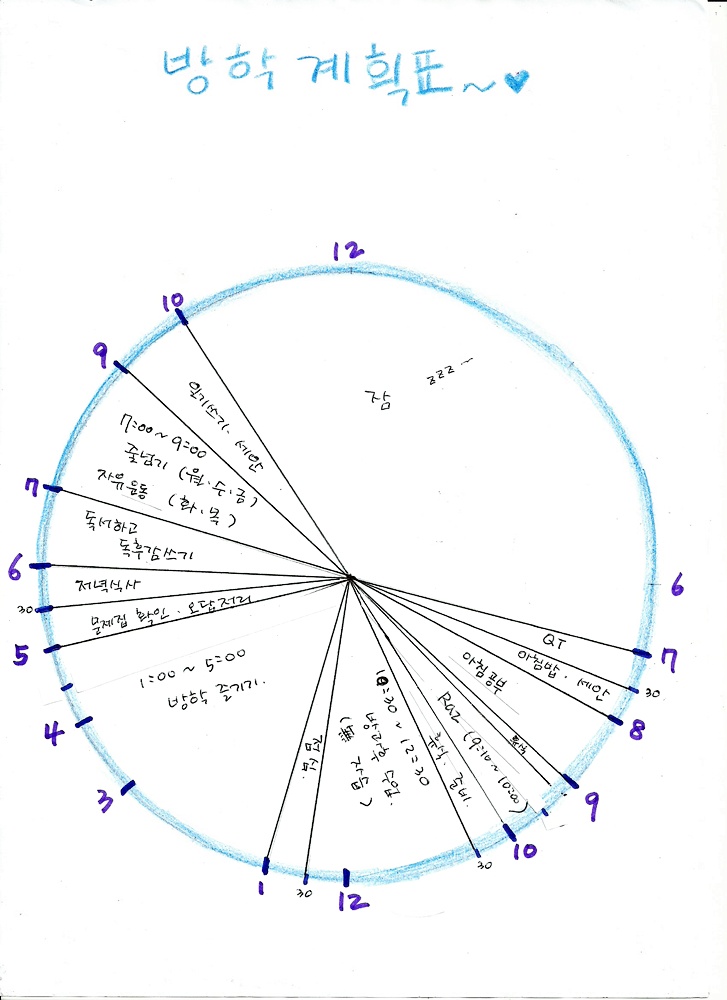 방학 계획표~♥
12
10
9
7
6
30
5
4
3
1
30
12
30
10
9
8
30
7
6
잠 zzz~
QT
아침밥·세안
아침공부
휴식
Raz (9:10~10:00)
휴식·바로
10:30~12:30
방과학
수업.
점심.
1:00~5:00
방학 즐기기.
문제집 확인·오답정리
저녁식사
독서하고
독후감쓰기
7:00~9:00
줄넘기 (월·수·금)
자유운동 (화·목)
일기쓰기·세안